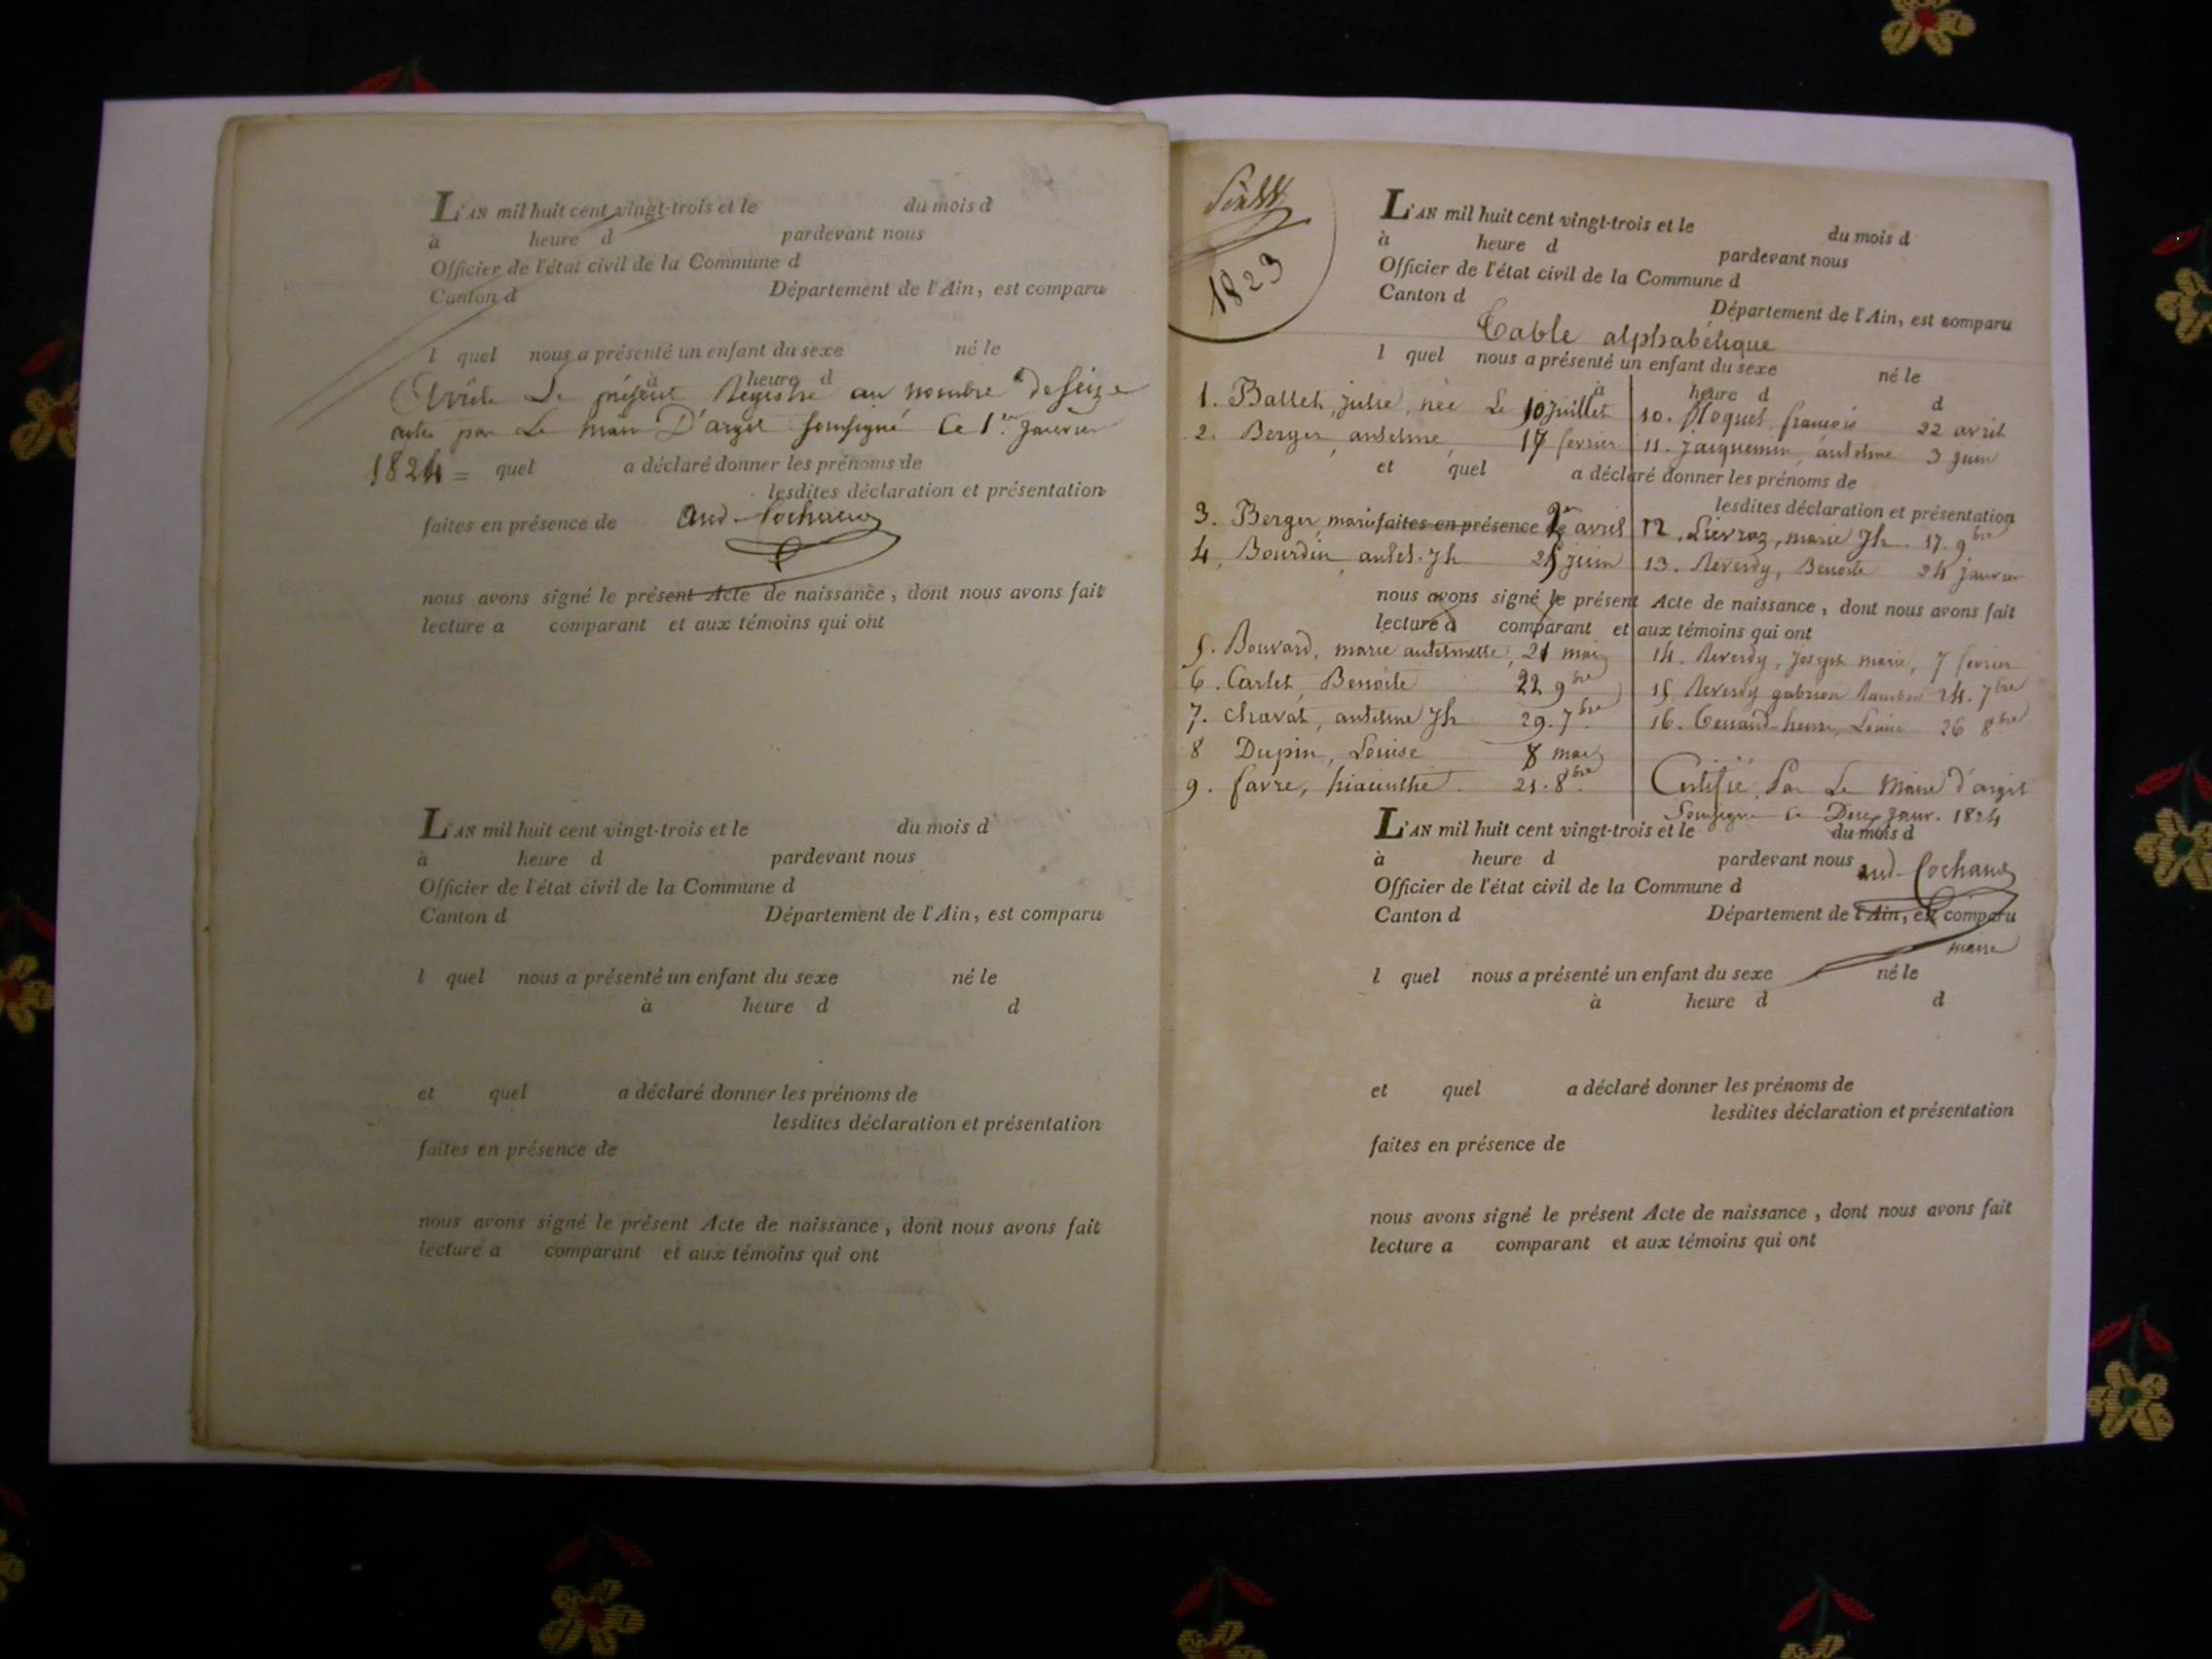 L'AN mil huit cent vingt-trois et le du mois d
à heure d pardevant nous
Officier de l'état civil de la Commune d
Canton d Département de l'Ain, est comparu
l quel nous a présenté un enfant du sexe né le
à heure d
Le présent Registre au nombre de seize
actes par Le maire D'argis soussigné Ce 1.er Janvier
1824 =
quel a déclaré donner les prénoms de
lesdites déclaration et présentation
faites en présence de
And. Cochaud
nous avons signé le présent Acte de naissance, dont nous avons fait
lecture a comparant et aux témoins qui ont
L'AN mil huit cent vingt-trois et le du mois d
à heure d pardevant nous
Officier de l'état civil de la Commune d
Canton d Département de l'Ain, est comparu
l quel nous a présenté un enfant du sexe né le
à heure d d
et quel a déclaré donner les prénoms de
lesdites déclaration et présentation
faites en présence de
nous avons signé le présent Acte de naissance, dont nous avons fait
lecture a comparant et aux témoins qui ont
1823
L'AN mil huit cent vingt-trois et le du mois d
à heure d pardevant nous
Officier de l'état civil de la Commune d
Canton d Département de l'Ain, est comparu
Table alphabétique
l quel nous a présenté un enfant du sexe né le
à heure d d
1. Ballet, julie, née Le 10 juillet
2. Berger, antelme 17 fevrier
et quel a déclaré donner les prénoms de
lesdites déclaration et présentation
3. Berger, marie avril
faites en présence de
4. Bourdin, antel. Jh 25 juin
nous avons signé le présent Acte de naissance, dont nous avons fait
lecture a comparant et aux témoins qui ont
5. Bouvard, marie antelmette, 21 mars
6. Carlet, Benoite 22 9bre
7. Chavat, antelme Jh 29. 7bre
8 Dupin, Louise 8 mars
9. favre, hiacinthe 21. 8bre
10. françois 22 avril
11. Jacquemin, antelme 3 juin
12. Lievroz, marie Jh 17. 9bre
13. Reverdy, Benoite 24 janvier
14. Reverdy, Joseph marie, 7 fevrier
15. Reverdy 24. 7bre
16. Louise 26 8bre
Certifié Par Le Maire d'argis
Soussigné Ce Deux Janv. 1824
And. Cochaud
maire
L'AN mil huit cent vingt-trois et le du mois d
à heure d pardevant nous
Officier de l'état civil de la Commune d
Canton d Département de l'Ain, est comparu
l quel nous a présenté un enfant du sexe né le
à heure d d
et quel a déclaré donner les prénoms de
lesdites déclaration et présentation
faites en présence de
nous avons signé le présent Acte de naissance, dont nous avons fait
lecture a comparant et aux témoins qui ont